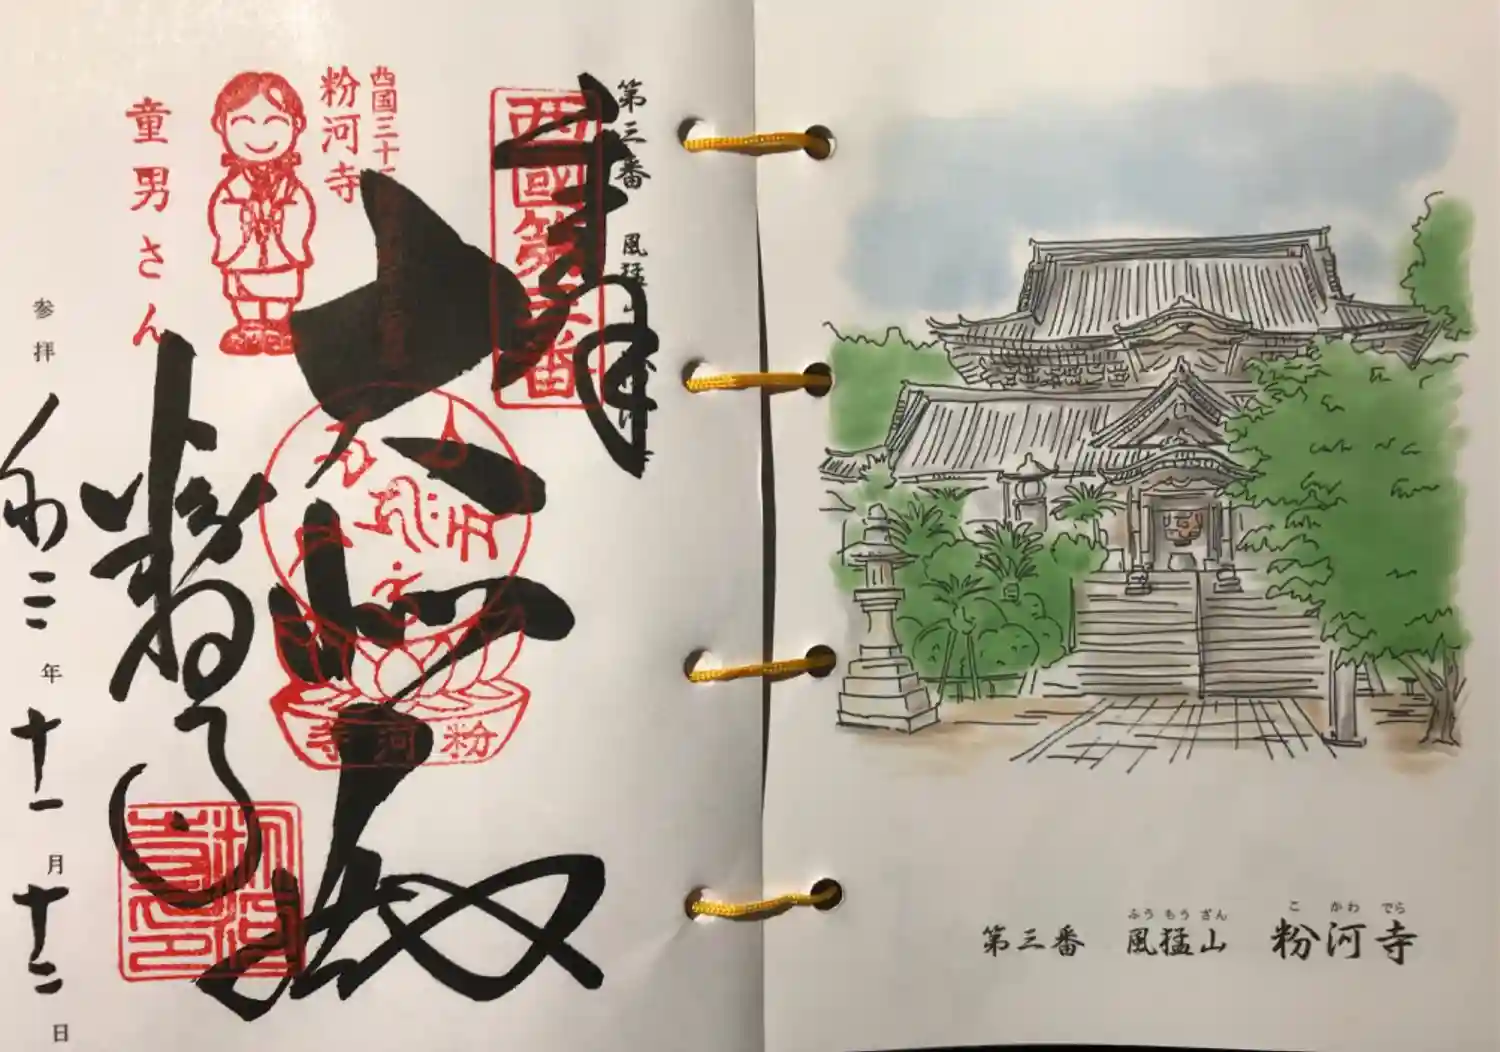 第三番 風猛
西國第三番
奉拝
西国三十三
粉河寺
童男さん
大悲殿
粉河寺
粉河寺
参拝 令和三年 十一月 十二日
第三番 風猛山 粉河寺
ふう もう ざん こ かわ でら